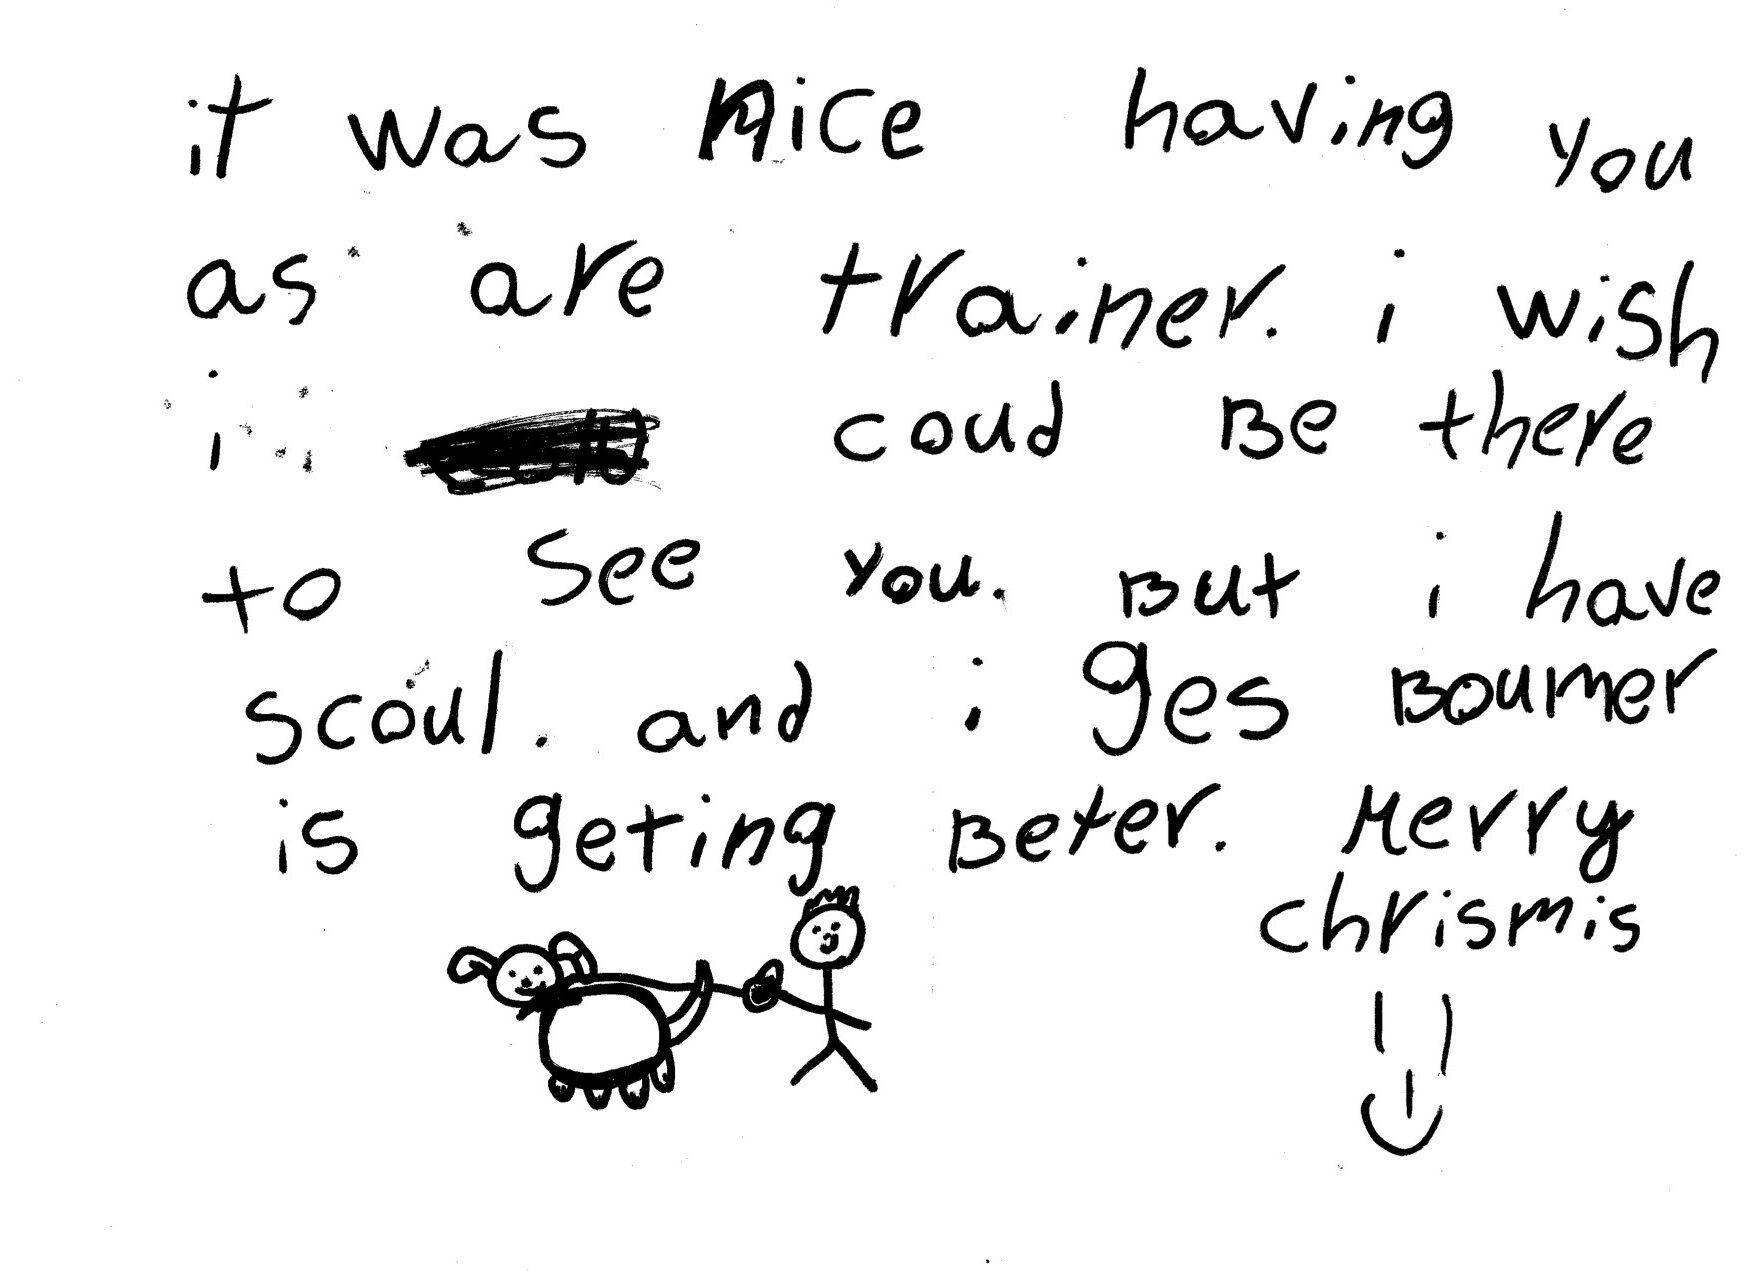 it was nice having you
as are trainer. i wish
i coud Be there
to see you. But i have
scoul. and i ges Boumer
is geting Beter. Merry
chrismis